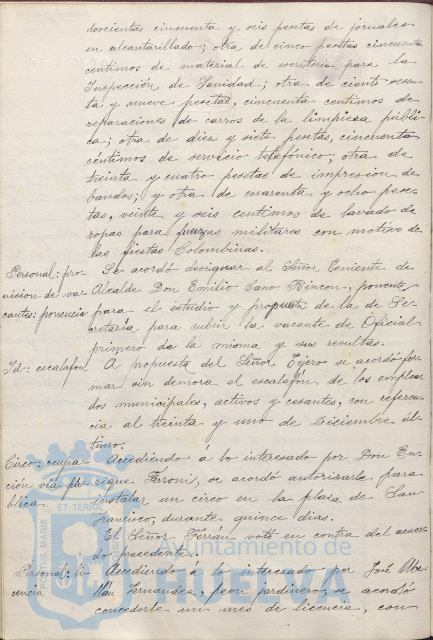 doscientas cincuenta y seis pesetas de jornales
en alcantarillado; otra de cinco pesetas cincuenta
centimos de material de escritorio para la
Inspección de Sanidad; otra de ciento sesen-
ta y nueve pesetas, cincuenta centimos de
reparaciones de carros de la limpieza públi-
ca; otra de diez y siete pesetas, cincuenta
céntimos de servicio telefónico; otra de
treinta y cuatro pesetas de impresión de
bandos; y otra de cuarenta y ocho pese-
tas, veinte y seis centimos de lavado de
ropas para fuerzas militares con motivo de
las fiestas Colombinas.
Personal: pro- Se acordó designar al Señor Teniente de
vision de va- Alcalde Don Emilio Cano Rincon, ponente
cantes: ponencia para el estudio y propuesta de la de Se-
cretaría para cubrir la vacante de Oficial
primero de la misma y sus resultas.
Id: escalafon A propuesta del Señor Tejero se acordó for-
mar sin demora el escalafón de los emplea-
dos municipales, activos y cesantes, con referen-
cia al treinta y uno de Diciembre úl-
timo.
Circo: ocupa- Accediendo á lo interesado por Don En-
ción via pú- rique Feroni, se acordó autorizarle para
blica instalar un circo en la plaza de San
Francisco, durante quince dias.
El Señor Terrán votó en contra del acuer-
do precedente.
Personal: li- Accediendo á lo interesado por José
cencia Fernandez, peon jardinero, se acordó
concederle un mes de licencia, con
ET TERRA
Ayuntamiento de
HUELVA